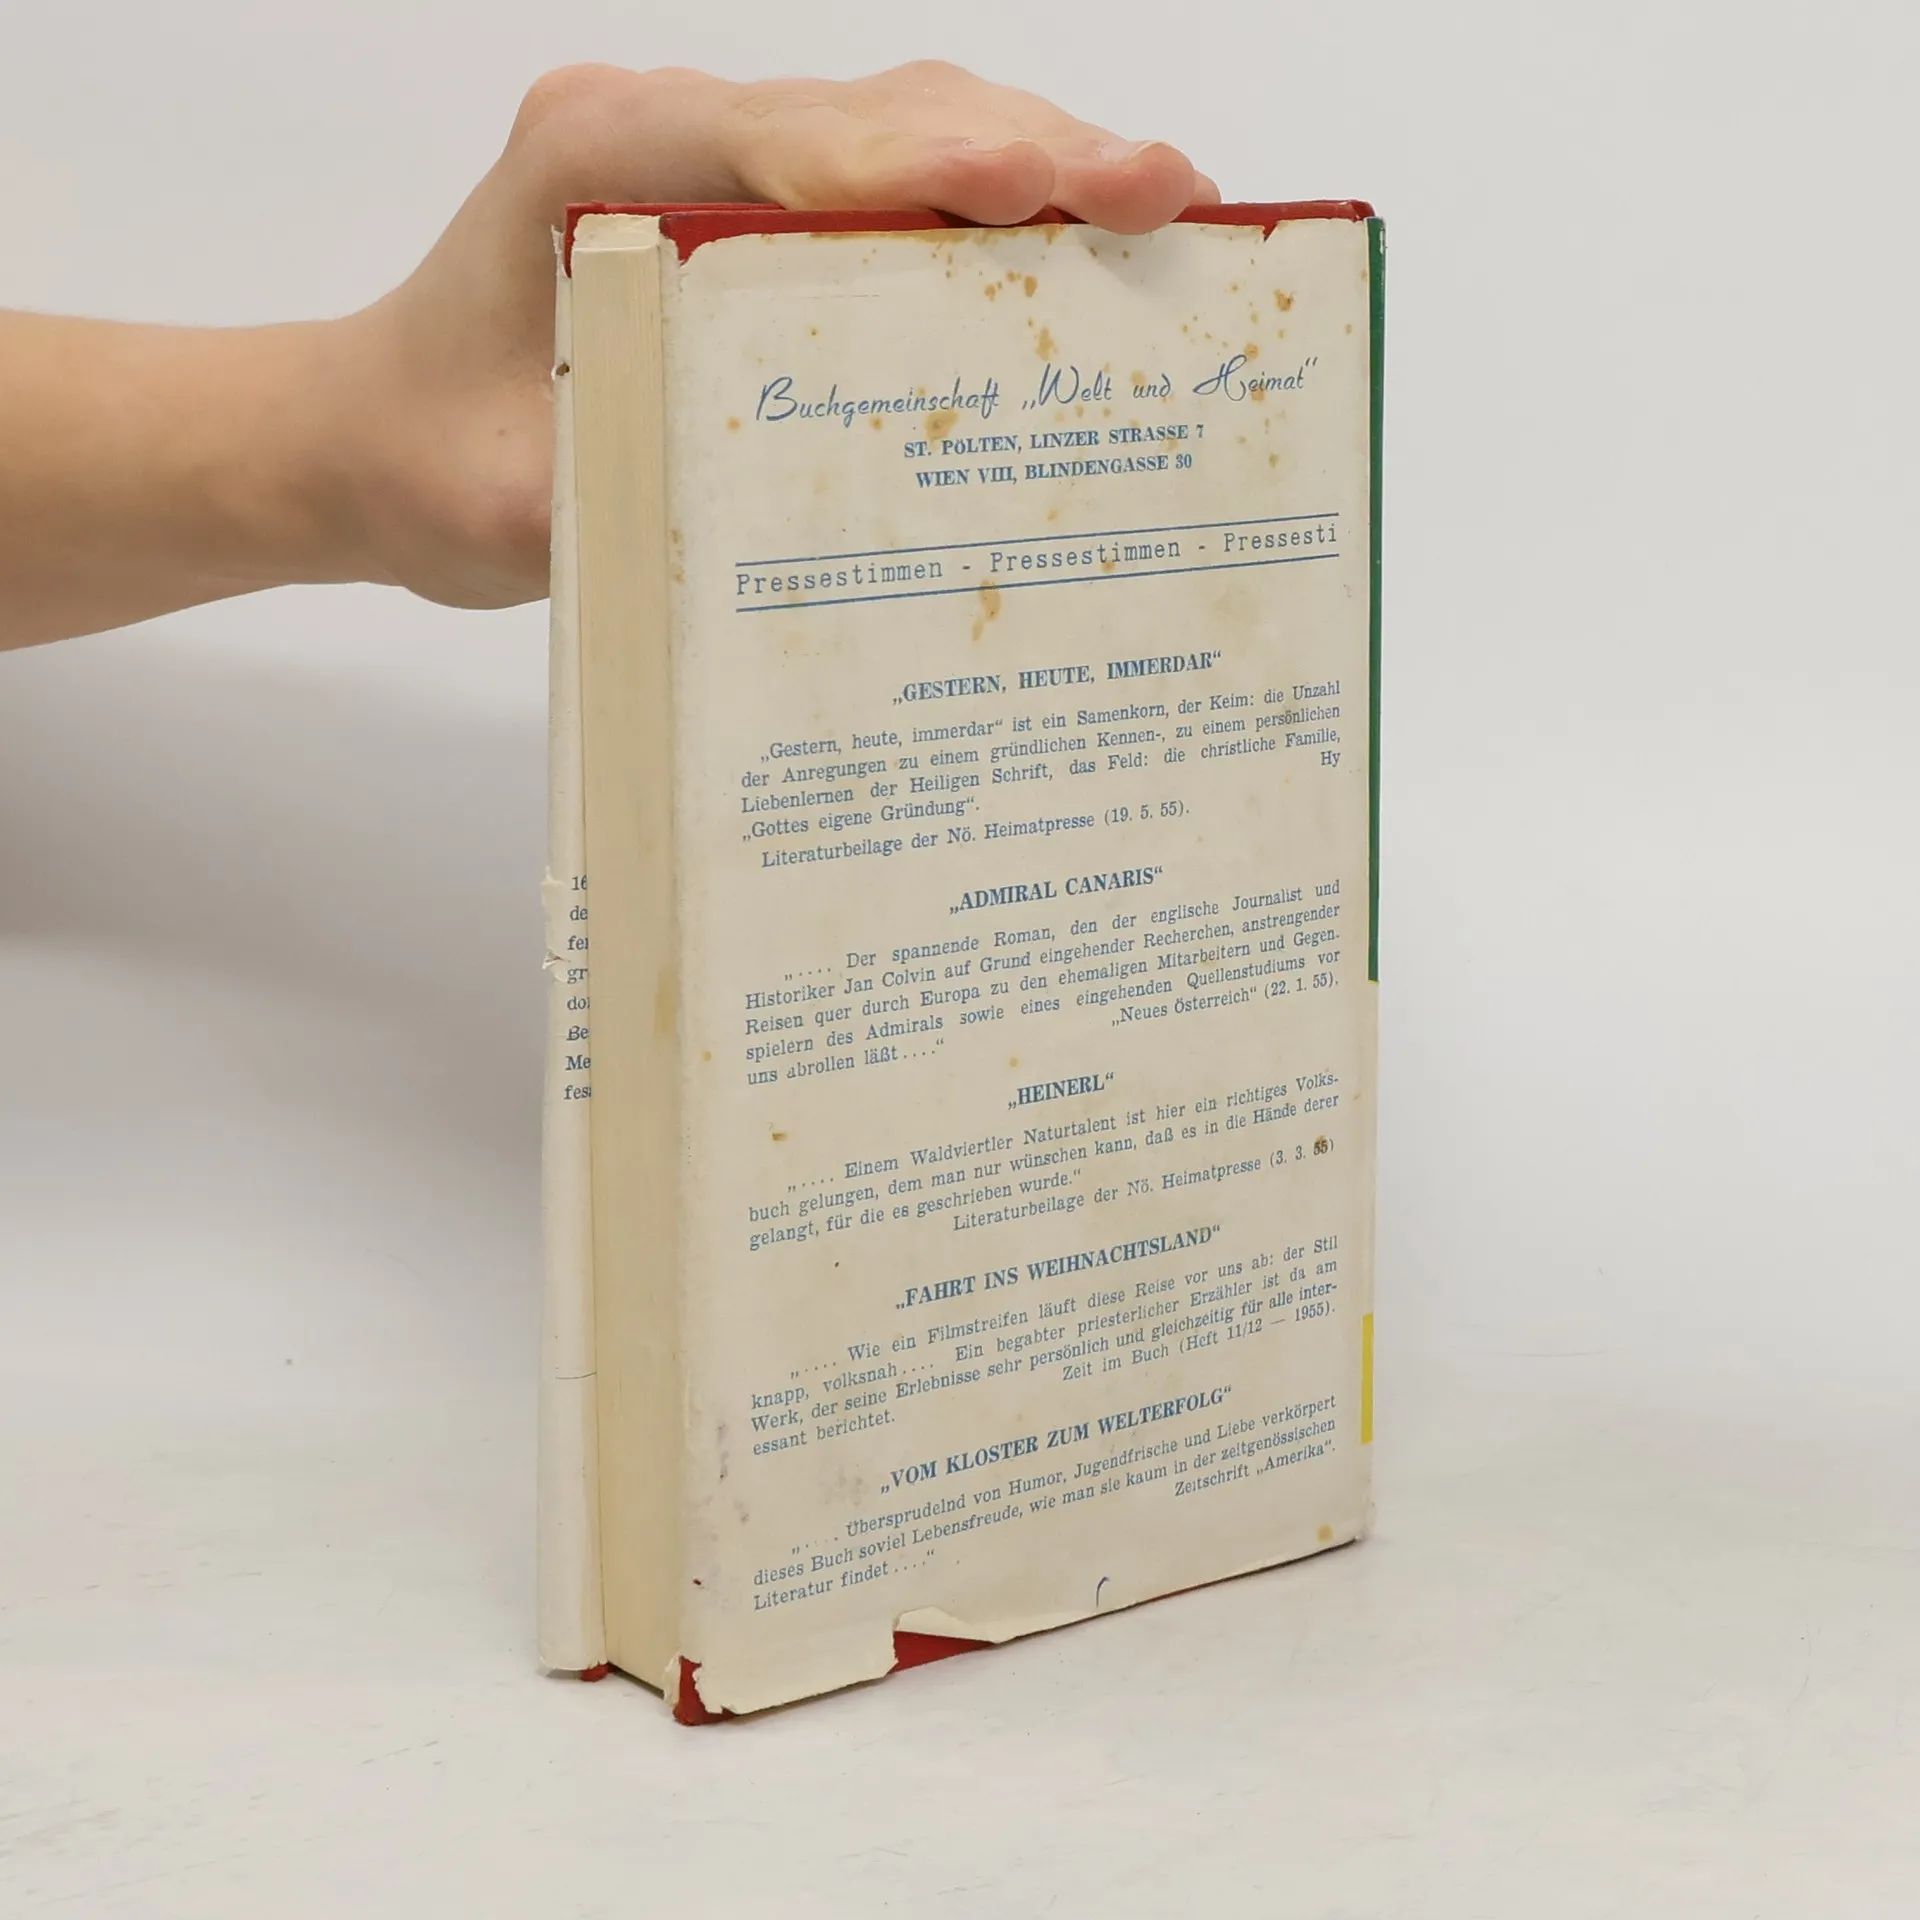 Buchgemeinschaft „Welt und Heimat“
ST. PÖLTEN, LINZER STRASSE 7
WIEN VIII, BLINDENGASSE 30
Pressestimmen - Pressestimmen - Pressesti
„GESTERN, HEUTE, IMMERDAR“
„Gestern, heute, immerdar“ ist ein Samenkorn, der Keim: die Unzahl
der Anregungen zu einem gründlichen Kennen-, zu einem persönlichen
Liebenlernen der Heiligen Schrift, das Feld: die christliche Familie,
„Gottes eigene Gründung“. Hy
Literaturbeilage der Nö. Heimatpresse (19. 5. 55).
„ADMIRAL CANARIS“
„.... Der spannende Roman, den der englische Journalist und
Historiker Jan Colvin auf Grund eingehender Recherchen, anstrengender
Reisen quer durch Europa zu den ehemaligen Mitarbeitern und Gegen-
spielern des Admirals sowie eines eingehenden Quellenstudiums vor
uns abrollen läßt ....“ „Neues Österreich“ (22. 1. 55).
„HEINERL“
„.... Einem Waldviertler Naturtalent ist hier ein richtiges Volks-
buch gelungen, dem man nur wünschen kann, daß es in die Hände derer
gelangt, für die es geschrieben wurde.“
Literaturbeilage der Nö. Heimatpresse (3. 3. 55)
„FAHRT INS WEIHNACHTSLAND“
„.... Wie ein Filmstreifen läuft diese Reise vor uns ab: der Stil
knapp, volksnah .... Ein begabter priesterlicher Erzähler ist da am
Werk, der seine Erlebnisse sehr persönlich und gleichzeitig für alle inter-
essant berichtet. Zeit im Buch (Heft 11/12 — 1955).
„VOM KLOSTER ZUM WELTERFOLG“
„.... Übersprudelnd von Humor, Jugendfrische und Liebe verkörpert
dieses Buch soviel Lebensfreude, wie man sie kaum in der zeitgenössischen
Literatur findet ....“ Zeitschrift „Amerika“.
16
de
fer
gr
do
Be
Me
fes